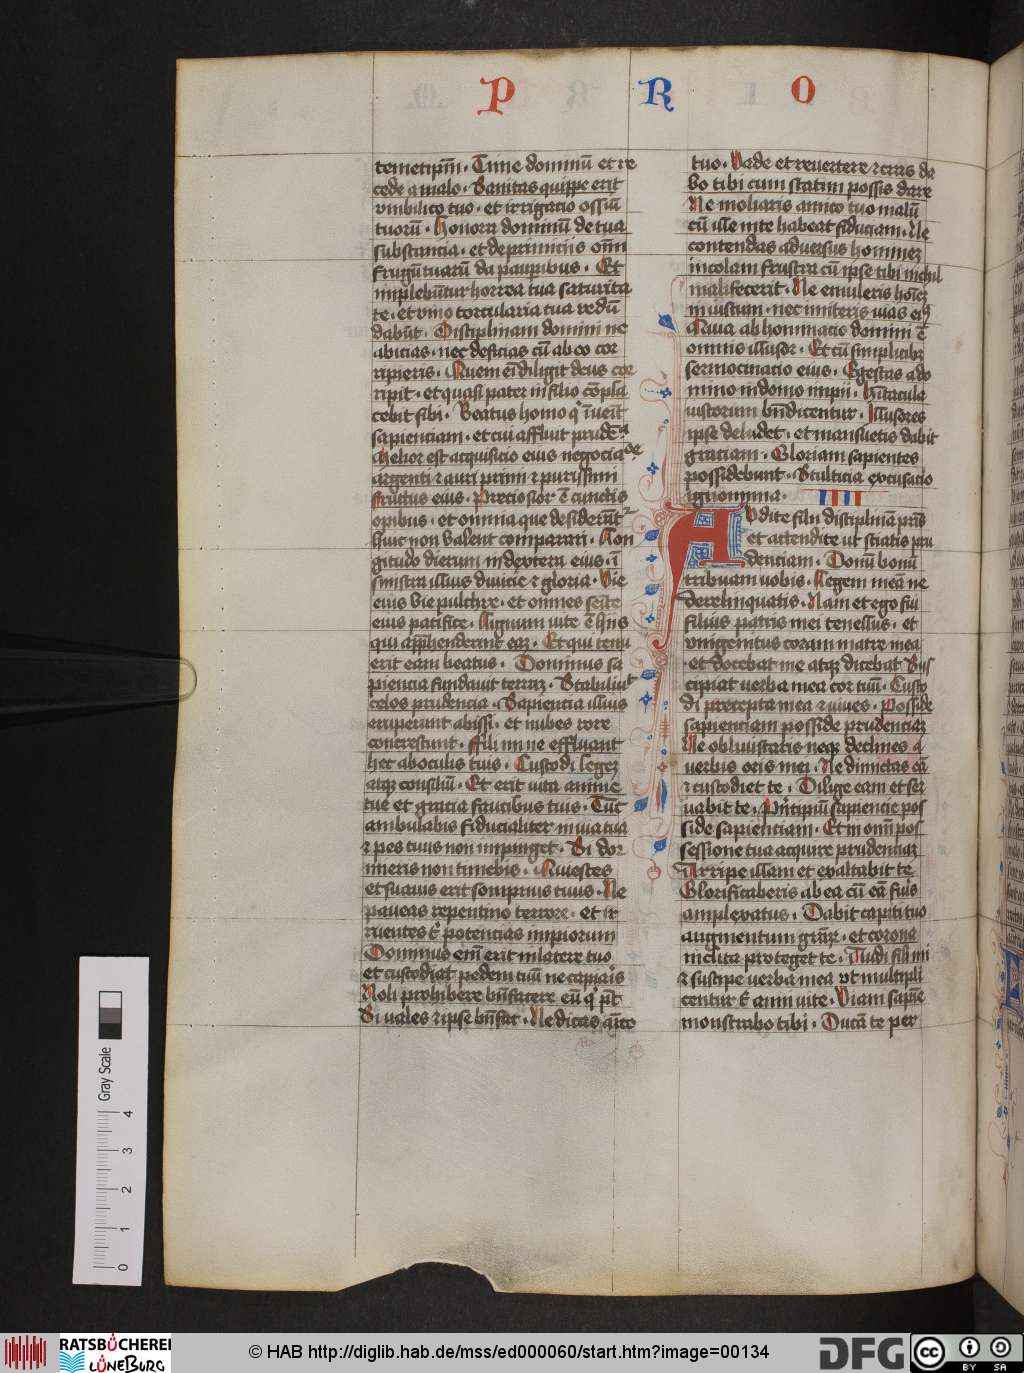 P R O
temetip̅m̅. Time dominū et re
cede a malo. Sanitas quippe erit
vmbilico tuo. et irrigacio ossiū
tuorū. Honora dominū de tua
substancia. et de primiciis om̅i
frugū tuarū da paup̱ibus. Et
implebūtur horrea tua saturita
te. et vino torcularia tua redū
dabūt. Disciplinam domini ne
abicias. nec deficias cū ab eo cor
ripieris. Quem em̅ diligit deus cor
ripit. et quasi pater in filio cōpla
cebit sibi. Beatus homo qͥ īuenit
sapienciam. et cui affluit prude̅ᵃ
Melior est acquisicio eius negociaᵈᵉ
argenti ⁊ auri primi ⁊ purissimi
fructus eius. Preciosior ē cunctis
opibus. et omnia que desiderāt᷑
huic non valent comparari. Lon
gitudo dierum in dextera eius. ī
sinistra illius diuicie ⁊ gloria. Vie
eius vie pulchre. et omnes seīte
eius pacifice. Lignum vite ē hijs
qui app̅henderint eaꝫ. Et qui tenu
erit eam beatus. Dominus sa
piencia fundauit terraꝫ. Stabiliuᵗ
celos prudencia. Sapiencia illius
eruperunt abissi. et nubes rore
concrescunt. Fili mi ne effluant
hec ab oculis tuis. Custodi legeꝫ
atqꝫ consiliū. Et erit vita anime
tue et gracia faucibus tuis. Tūc
ambulabis fiducialiter in via tua
⁊ pes tuus non impinget. Si dor
mieris non timebis. Quiesces
et suauis erit sompnus tuus. Ne
paueas repentino terrore. et ir
ruentes tͥ potencias impiorum
Dominus em̅ erit in latere tuo
et custodiat pedem tuū ne capiaris
Noli prohibere bn̅facere eū qͥ pt̅
Si vales ⁊ ipse bn̅fac. Ne dicas amͥco
tuo. Vade et reuertere ⁊ cras da
bo tibi cum statim possis dare
Ne moliaris amico tuo malū
cū ille in te habeat fiduciam. Ne
contendas aduersus homineꝫ
incolam frustra cū ipse tibi nichil
mali fecerit. Ne emuleris ho̅i̅eꝫ
iniustum. nec imiteris vias eiꝰ
Quia abhominacio domini ē
omnis illusor. Et cū simplicibꝫ
sermocinacio eius. Egestas a do
mino in domo impii. Hītacula
iustorum bn̅dicentur. Illusores
ipse deludet. et mansuetis dabit
graciam. Gloriam sapientes
possidebunt. Stulticia excusacio
ignominia. IIII
Audite filii disciplinā pr̅is
et attendite ut sciatis pru
denciam. Donū bonū
tribuam uobis. Legem meā ne
derelinquatis. Nam et ego fui
filius patris mei tenellus. et
vnigenitus coram matre mea
et docebat me atqꝫ dicebat Sus
cipiat uerba mea cor tuū. Custo
di precepta mea ⁊ viues. Posside
sapienciam posside prudenciaꝫ
Ne obliuiscaris neqꝫ declines a
uerbis oris mei. Ne dimittas eā
⁊ custodiet te. Dilige eam et ser
uabit te. Pͥncipiū sapiencie pos
side sapienciam. Et in om̅i pos
sessione tua acquire prudenciaꝫ
Arripe illam et exaltabit te
Glorificaberis ab ea cū eā fuis
amplexatus. Dabit capiti tuo
augmentum gra̅ꝝ. et corona
inclita proteget te. Audi fili mi
⁊ suscipe verba mea ut multipli
centur tͥ anni vite. Viam sapn̅e
monstrabo tibi. Ducā te per
Gray Scale
0 1 2 3 4
RATSBÜCHEREI
LÜNEBURG
© HAB http://diglib.hab.de/mss/ed000060/start.htm?image=00134
DFG
cc BY SA